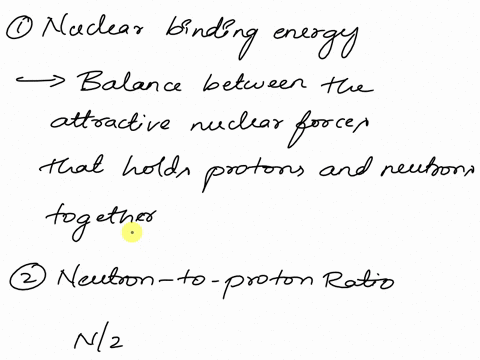 ① Nuclear binding energy
→ Balance between the
attractive nuclear forces
that holds protons and neutrons
together
② Neutron-to-proton Ratio
N/2